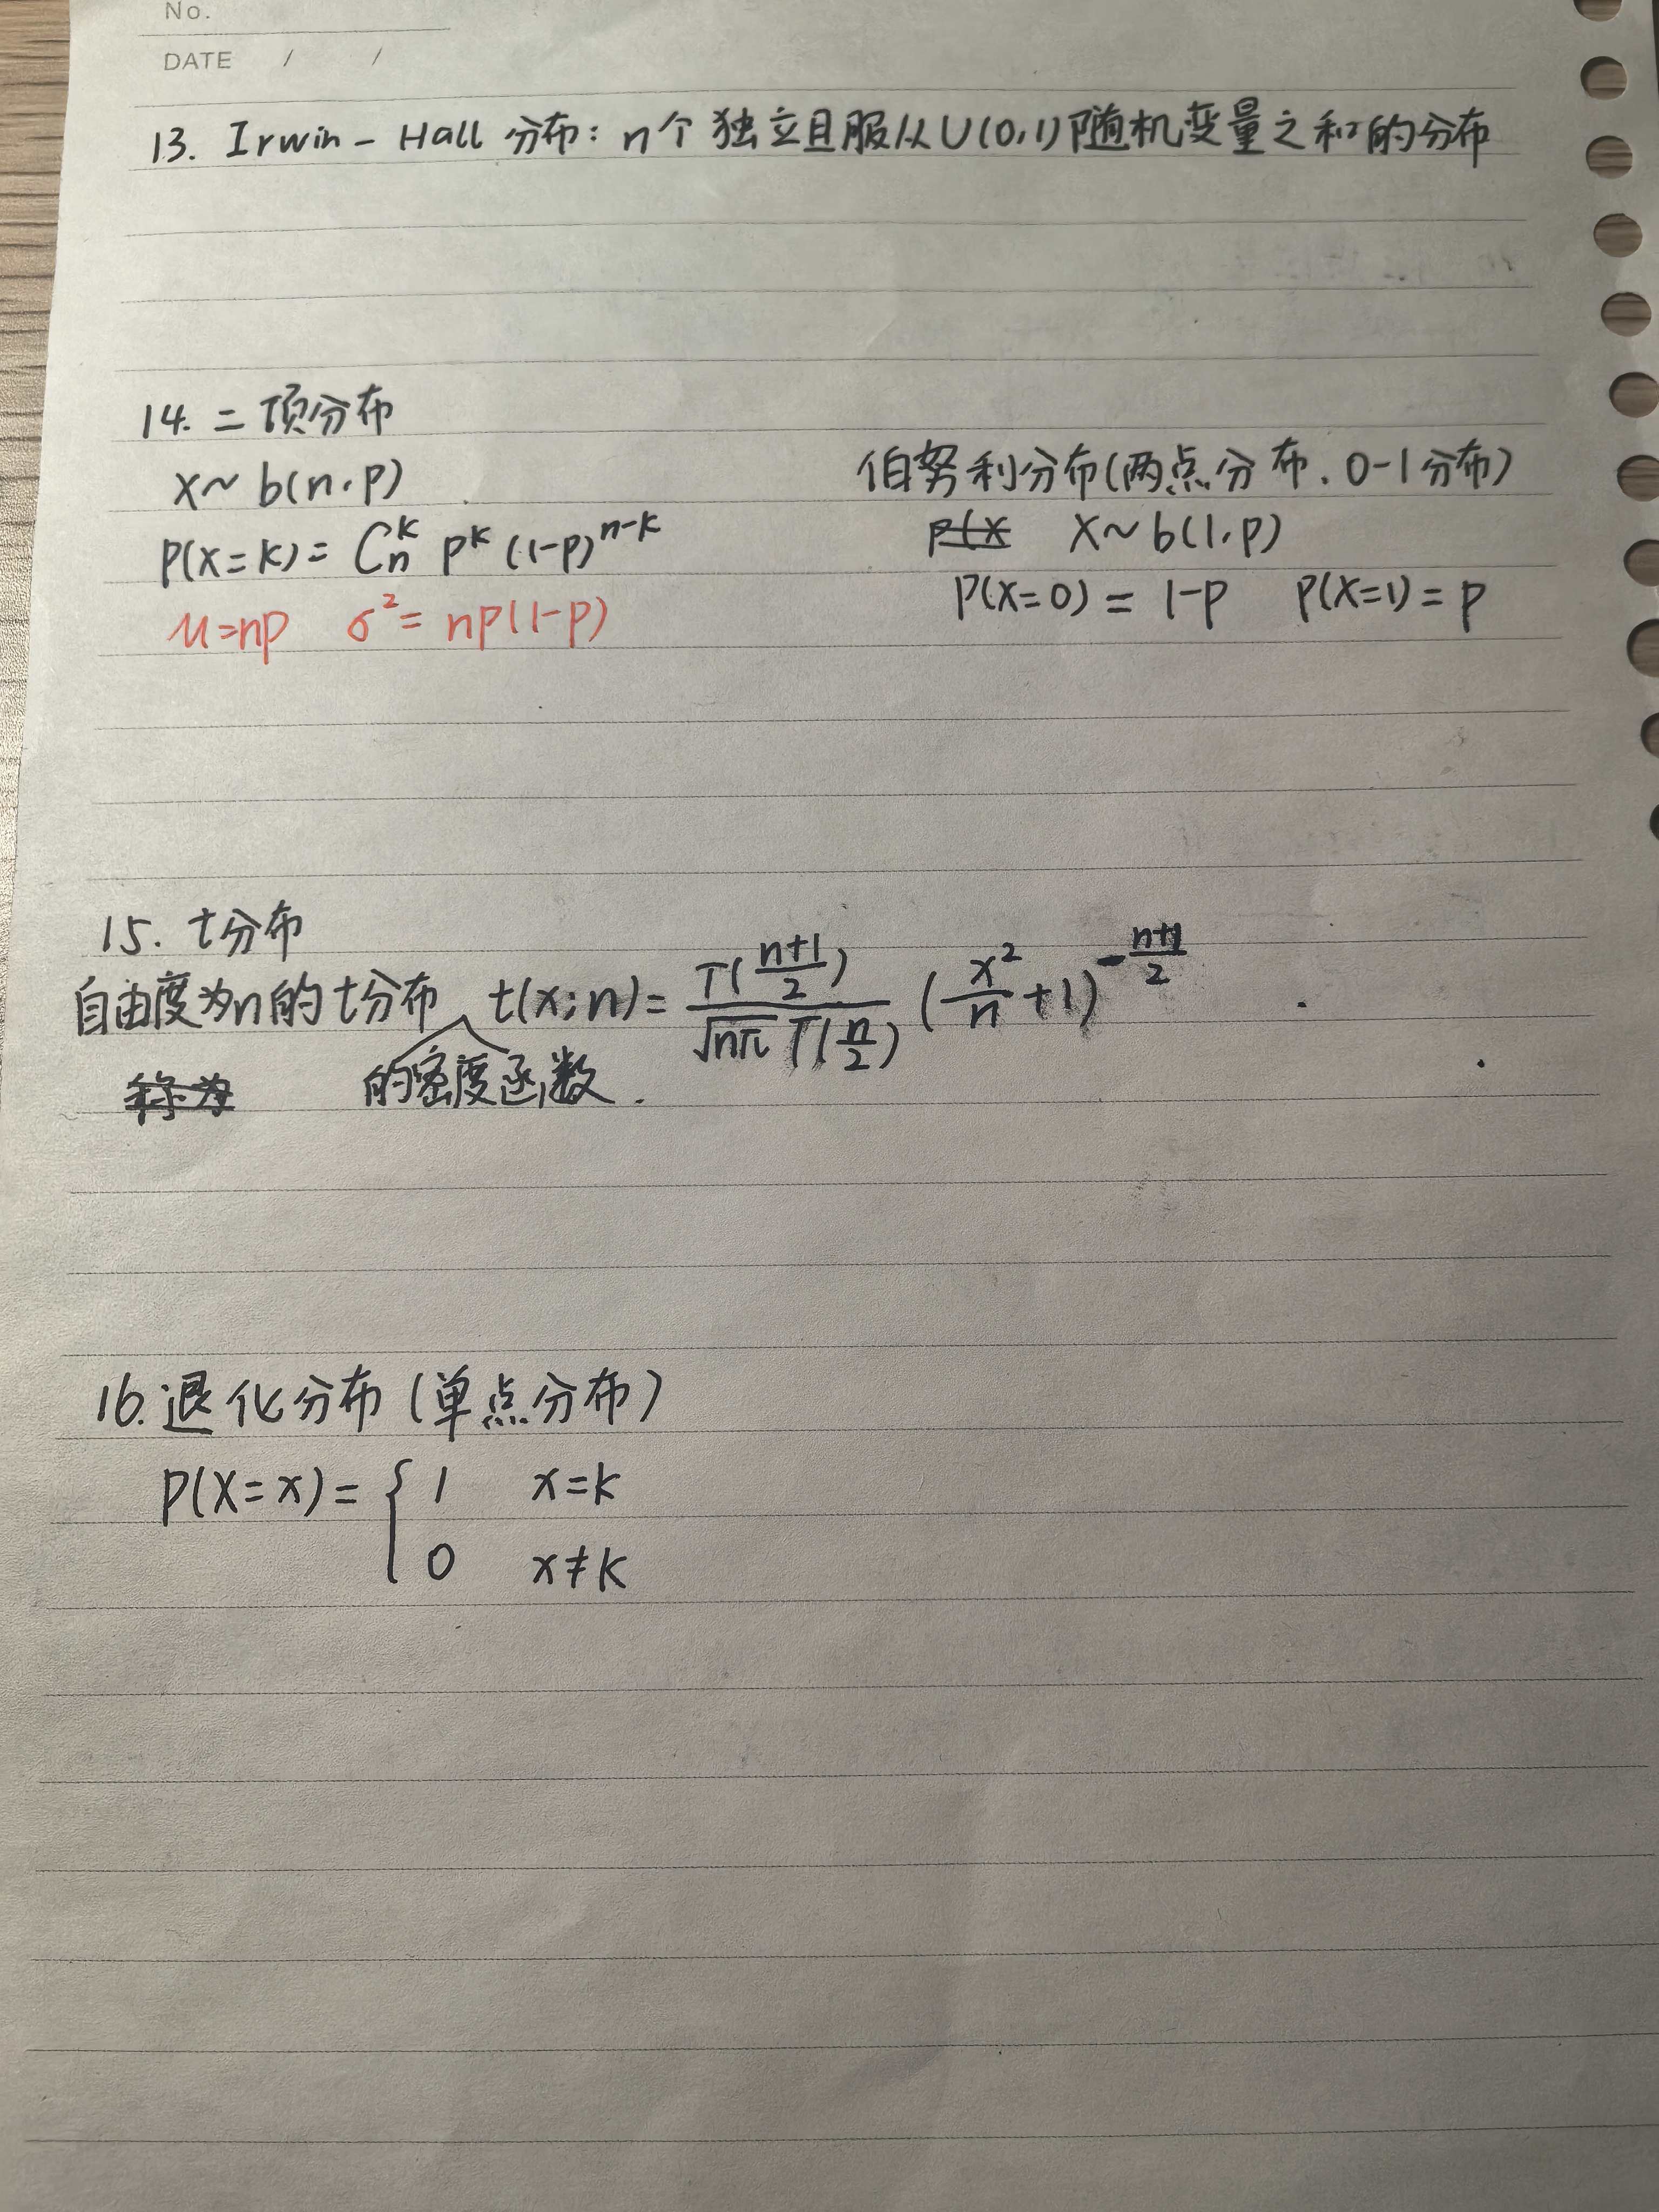 No.
DATE / /
13. Irwin-Hall 分布: n个独立且服从U(0,1)随机变量之和的分布
14. 二项分布
X~b(n,p)
P(X=k)= C_n^k p^k (1-p)^{n-k}
μ=np σ²= np(1-p)
伯努利分布(两点分布、0-1分布)
P(X X~b(1,p)
P(X=0)= 1-p P(X=1)=p
15. t分布
自由度为n的t分布 t(x;n)= Γ((n+1)/2) / (√(nπ) Γ(n/2)) (x²/n+1)^{-(n+1)/2}
称为 的密度函数.
16. 退化分布(单点分布)
P(X=x)= { 1 x=k
0 x≠k